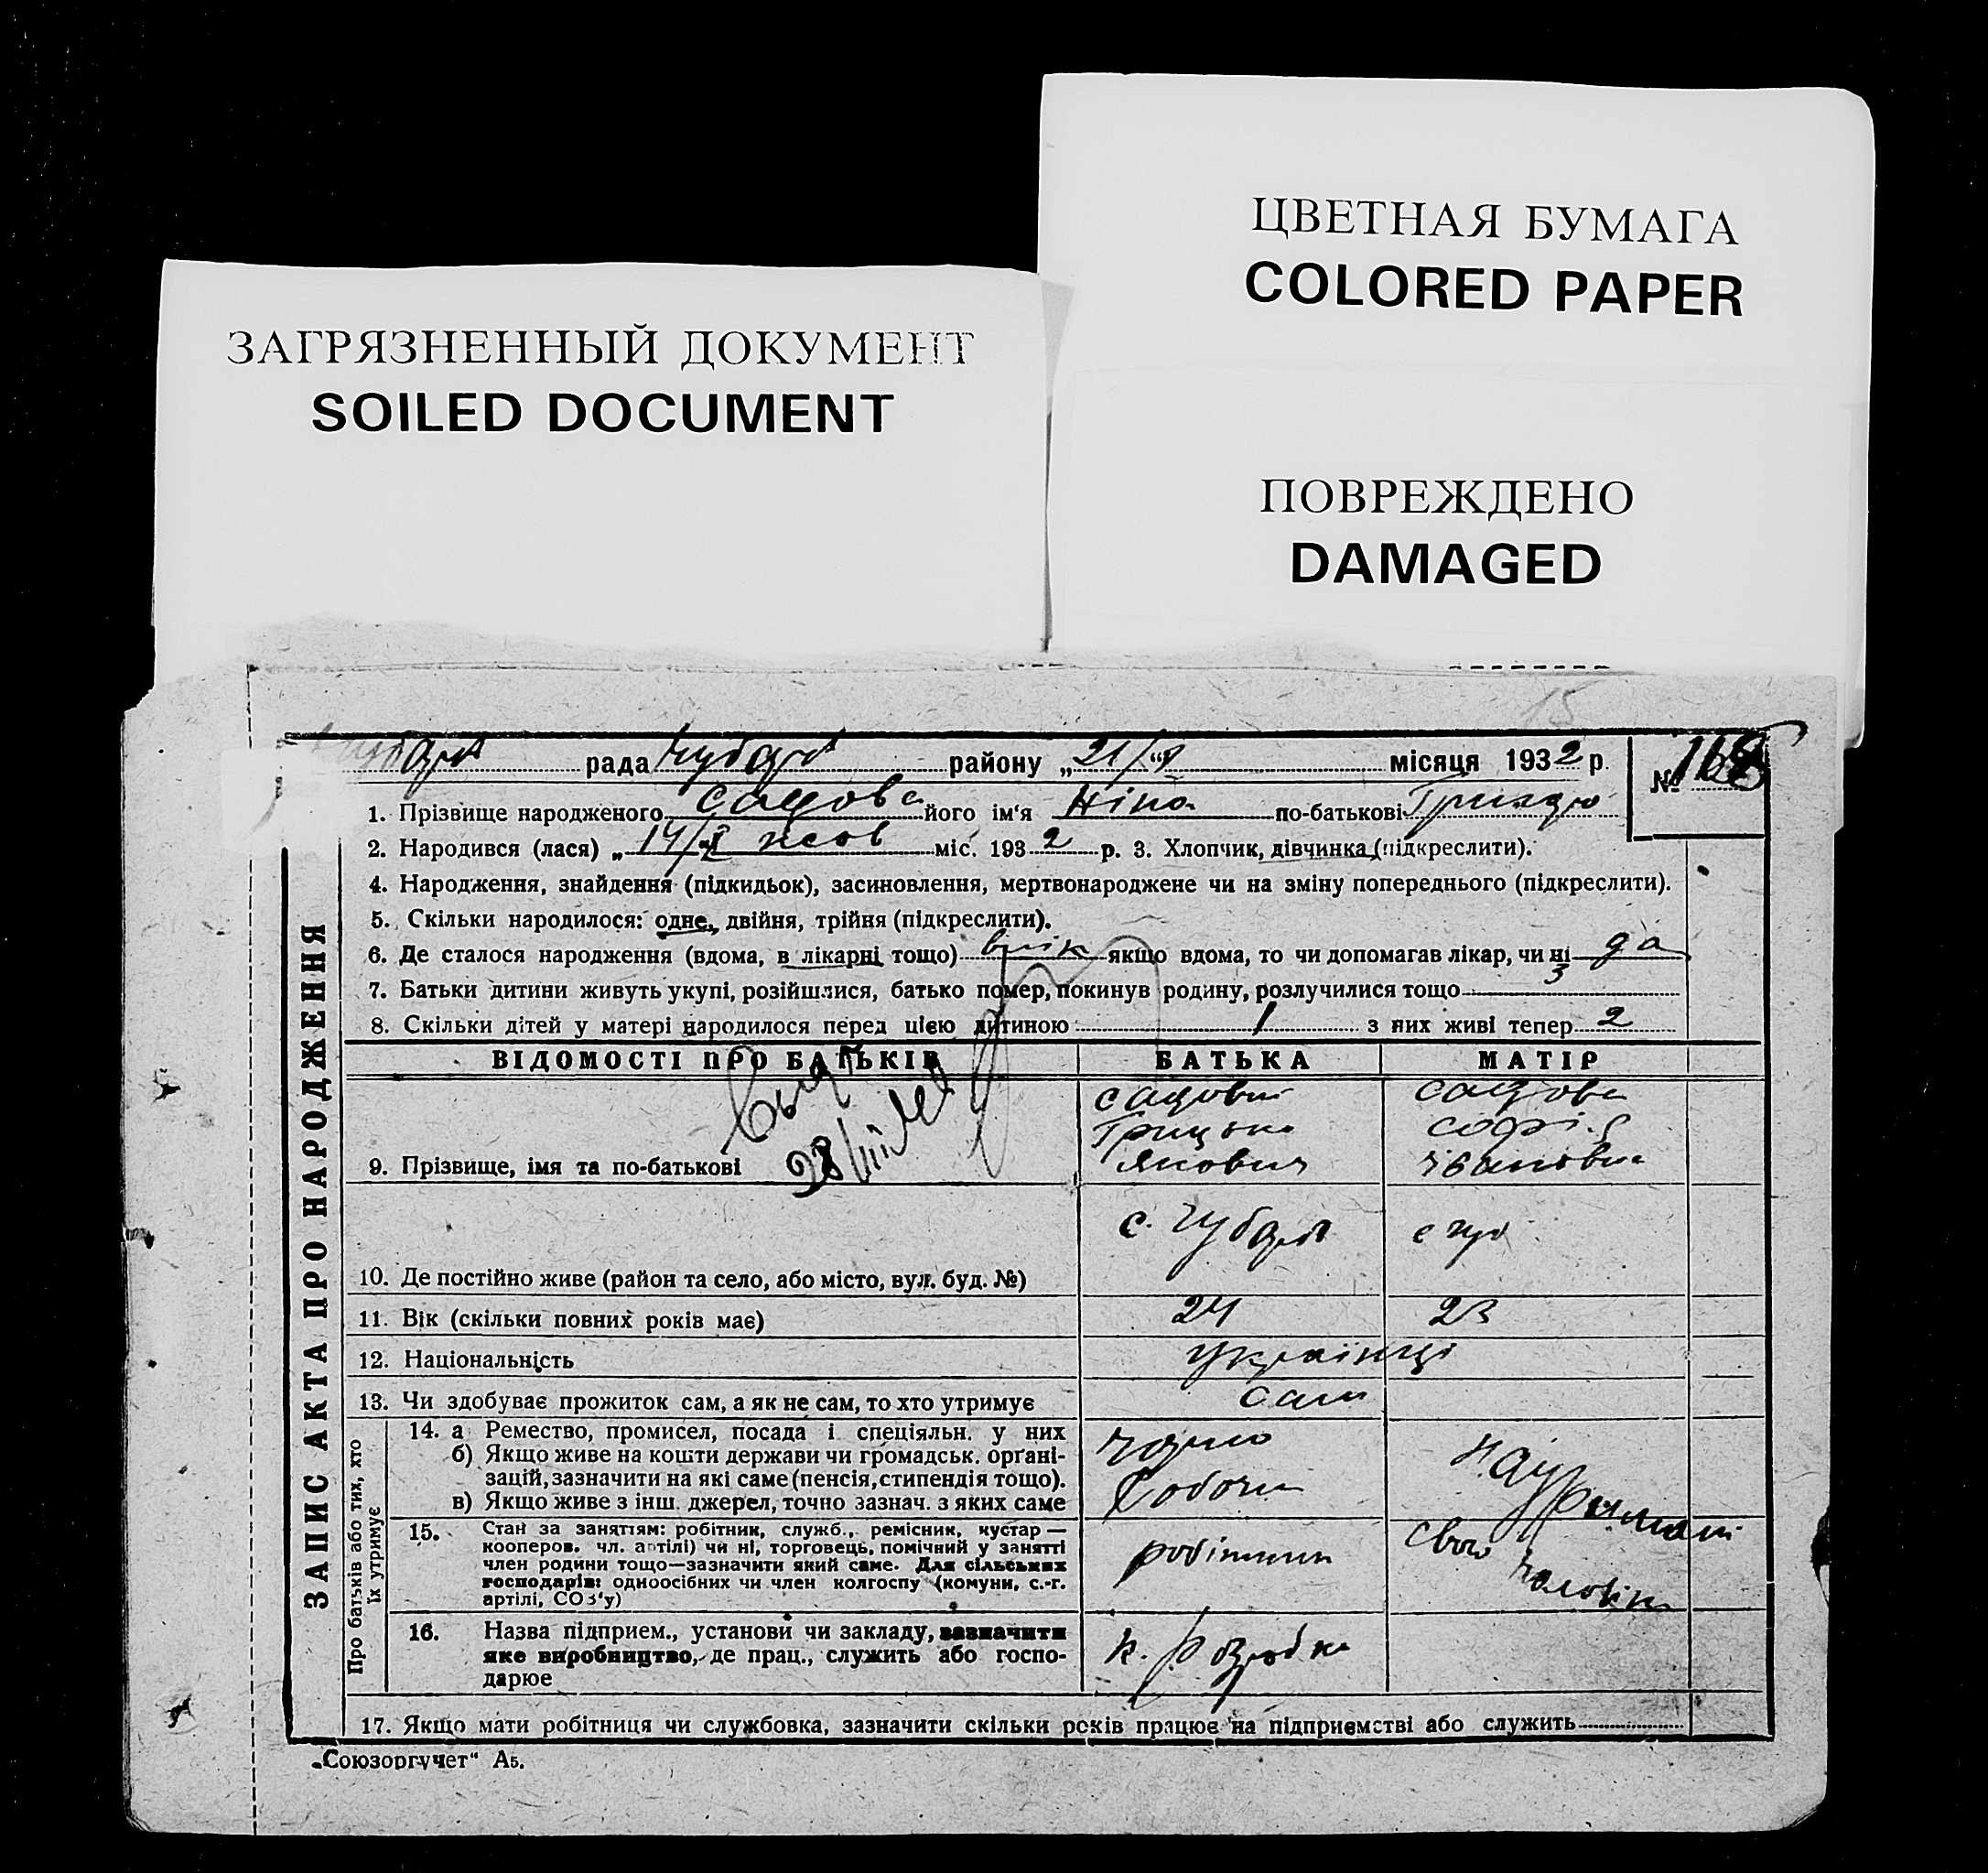 ЦВЕТНАЯ БУМАГА
COLORED PAPER
ЗАГРЯЗНЕННЫЙ ДОКУМЕНТ
SOILED DOCUMENT
ПОВРЕЖДЕНО
DAMAGED
15
рада району „21/ “ місяця 1932 р. №
1. Прізвище народженого Садова його ім‘я Ніна по-батькові
2. Народився (лася) „14/X жов міс. 1932 р. 3. Хлопчик, дівчинка (підкреслити).
4. Народження, знайдення (підкидьок), засиновлення, мертвонароджене чи на зміну попереднього (підкреслити).
5. Скільки народилося: одне, двійня, трійня (підкреслити).
6. Де сталося народження (вдома, в лікарні тощо) якщо вдома, то чи допомагав лікар, чи ні да
7. Батьки дитини живуть укупі, розійшлися, батько помер, покинув родину, розлучилися тощо
8. Скільки дітей у матері народилося перед цією дитиною 1 з них живі тепер 2
ВІДОМОСТІ ПРО БАТЬКІВ БАТЬКА МАТІР
Садовий Садова
Грицько Софія
9. Прізвище, імя та по-батькові Якович Івановна
с. Чубарі
10. Де постійно живе (район та село, або місто, вул. буд. №)
11. Вік (скільки повних років має) 24 23
12. Національність Українці
13. Чи здобуває прожиток сам, а як не сам, то хто утримує сам
14. а Ремество, промисел, посада і спеціяльн. у них чорно
б) Якщо живе на кошти держави чи громадськ. орґані-
зацій, зазначити на які саме (пенсія, стипендія тощо).
в) Якщо живе з інш. джерел, точно зазнач. з яких саме
15. Стан за заняттям: робітник, служб., ремісник, кустар —
кооперов. чл. артілі) чи ні, торговець, помічний у занятті
член родини тощо—зазначити який саме. Для сільських
господарів: одноосібних чи член колгоспу (комуни, с.-г.
артілі, СОЗ‘у)
робітник
свого
16. Назва підприєм., установи чи закладу, зазначити
яке виробництво, де прац., служить або госпо-
дарює
17. Якщо мати робітниця чи службовка, зазначити скільки років працює на підприємстві або служить
„Союзоргучет“ А5.
ЗАПИС АКТА ПРО НАРОДЖЕННЯ
Про батьків або тих, хто
їх утримує